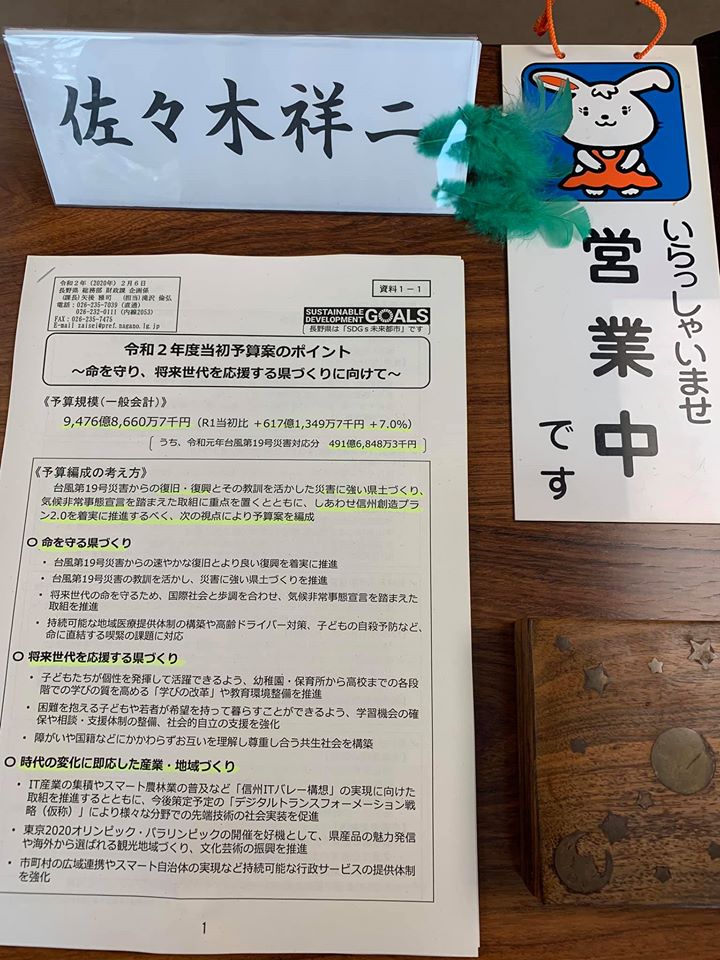 佐々木祥二
いらっしゃいませ
営業中
です
令和2年（2020年）2月6日
長野県 総務部 財政課 企画係
（課長）矢後 雅司 （担当）滝沢 倫弘
電話：026-235-7039（直通）
026-232-0111（内線2053）
FAX：026-235-7475
E-mail zaisei@pref.nagano.lg.jp
資料1－1
SUSTAINABLE DEVELOPMENT GOALS
長野県は「SDGｓ未来都市」です
令和２年度当初予算案のポイント
～命を守り、将来世代を応援する県づくりに向けて～
《予算規模（一般会計）》
9,476億8,660万7千円（R1当初比 ＋617億1,349万7千円 ＋7.0%）
〔うち、令和元年台風第19号災害対応分 491億6,848万3千円〕
《予算編成の考え方》
台風第19号災害からの復旧・復興とその教訓を活かした災害に強い県土づくり、
気候非常事態宣言を踏まえた取組に重点を置くとともに、しあわせ信州創造プラ
ン2.0を着実に推進するべく、次の視点により予算案を編成
○ 命を守る県づくり
・ 台風第19号災害からの速やかな復旧とより良い復興を着実に推進
・ 台風第19号災害の教訓を活かし、災害に強い県土づくりを推進
・ 将来世代の命を守るため、国際社会と歩調を合わせ、気候非常事態宣言を踏まえた
取組を推進
・ 持続可能な地域医療提供体制の構築や高齢ドライバー対策、子どもの自殺予防など、
命に直結する喫緊の課題に対応
○ 将来世代を応援する県づくり
・ 子どもたちが個性を発揮して活躍できるよう、幼稚園・保育所から高校までの各段
階での学びの質を高める「学びの改革」や教育環境整備を推進
・ 困難を抱える子どもや若者が希望を持って暮らすことができるよう、学習機会の確
保や相談・支援体制の整備、社会的自立の支援を強化
・ 障がいや国籍などにかかわらずお互いを理解し尊重し合う共生社会を構築
○ 時代の変化に即応した産業・地域づくり
・ IT産業の集積やスマート農林業の普及など「信州ITバレー構想」の実現に向けた
取組を推進するとともに、今後策定予定の「デジタルトランスフォーメーション戦
略（仮称）」により様々な分野での先端技術の社会実装を促進
・ 東京2020オリンピック・パラリンピックの開催を好機として、県産品の魅力発信
や海外から選ばれる観光地域づくり、文化芸術の振興を推進
・ 市町村の広域連携やスマート自治体の実現など持続可能な行政サービスの提供体制
を強化
1